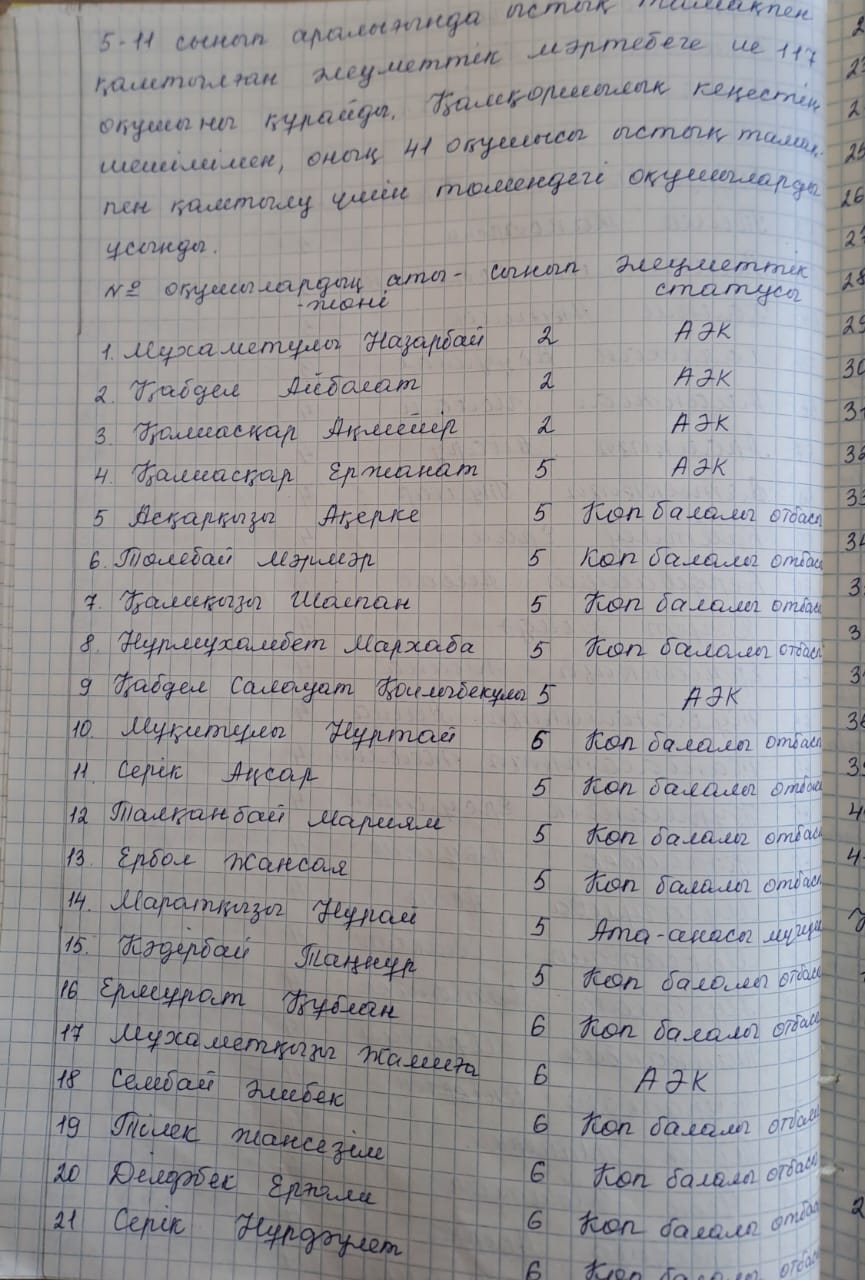 5-11 сынып аралығында ыстық тамақпен
қамтылған әлеуметтік мәртебеге ие 117
оқушыны құрайды. Қамқоршылық кеңестің
шешімімен, оның 41 оқушысы ыстық тамақ-
пен қамтылу үшін төмендегі оқушыларды
ұсынды.
№ оқушылардың аты- сынып әлеуметтік
-жөні статусы
1. Мұхаметұлы Назарбай 2 АӘК
2. Қабдел Айболат 2 АӘК
3. Қалиасқар Ақмейір 2 АӘК
4. Қалиасқар Ержанат 5 АӘК
5 Асқарқызы Ақерке 5 Көп балалы отбасы
6. Төлебай Мәрмәр 5 Көп балалы отбас
7. Қалиқызы Шолпан 5 Көп балалы отбас
8. Нұрмұхамбет Мархаба 5 Көп балалы отбас
9 Қабдел Салауат Қойлыбекұлы 5 АӘК
10. Мұқитұлы Нұртай 6 Көп балалы отбас
11. Серік Ақсар 5 Көп балалы отбас
12 Талқанбай Мариям 5 Көп балалы отбас
13. Ербол Жансая 5 Көп балалы отбас
14. Маратқызы Нұрай 5 Ата-анасы мүге
15. Кәдірбай Таңнұр 5 Көп балалы отбас
16 Ермұрат Құблан 6 Көп балалы отбас
17 Мұхаметқызы Жамиға 6 АӘК
18 Сембай Әлибек 6 Көп балалы отбас
19 Тілек Жансезім 6 Көп балалы отбас
20 Ерхали 6 Көп балалы отбас
21 Серік Нұрдәулет 6 Көп балалы отбас
2
2
25
26
27
28
29
30
31
32
33
34
3
3